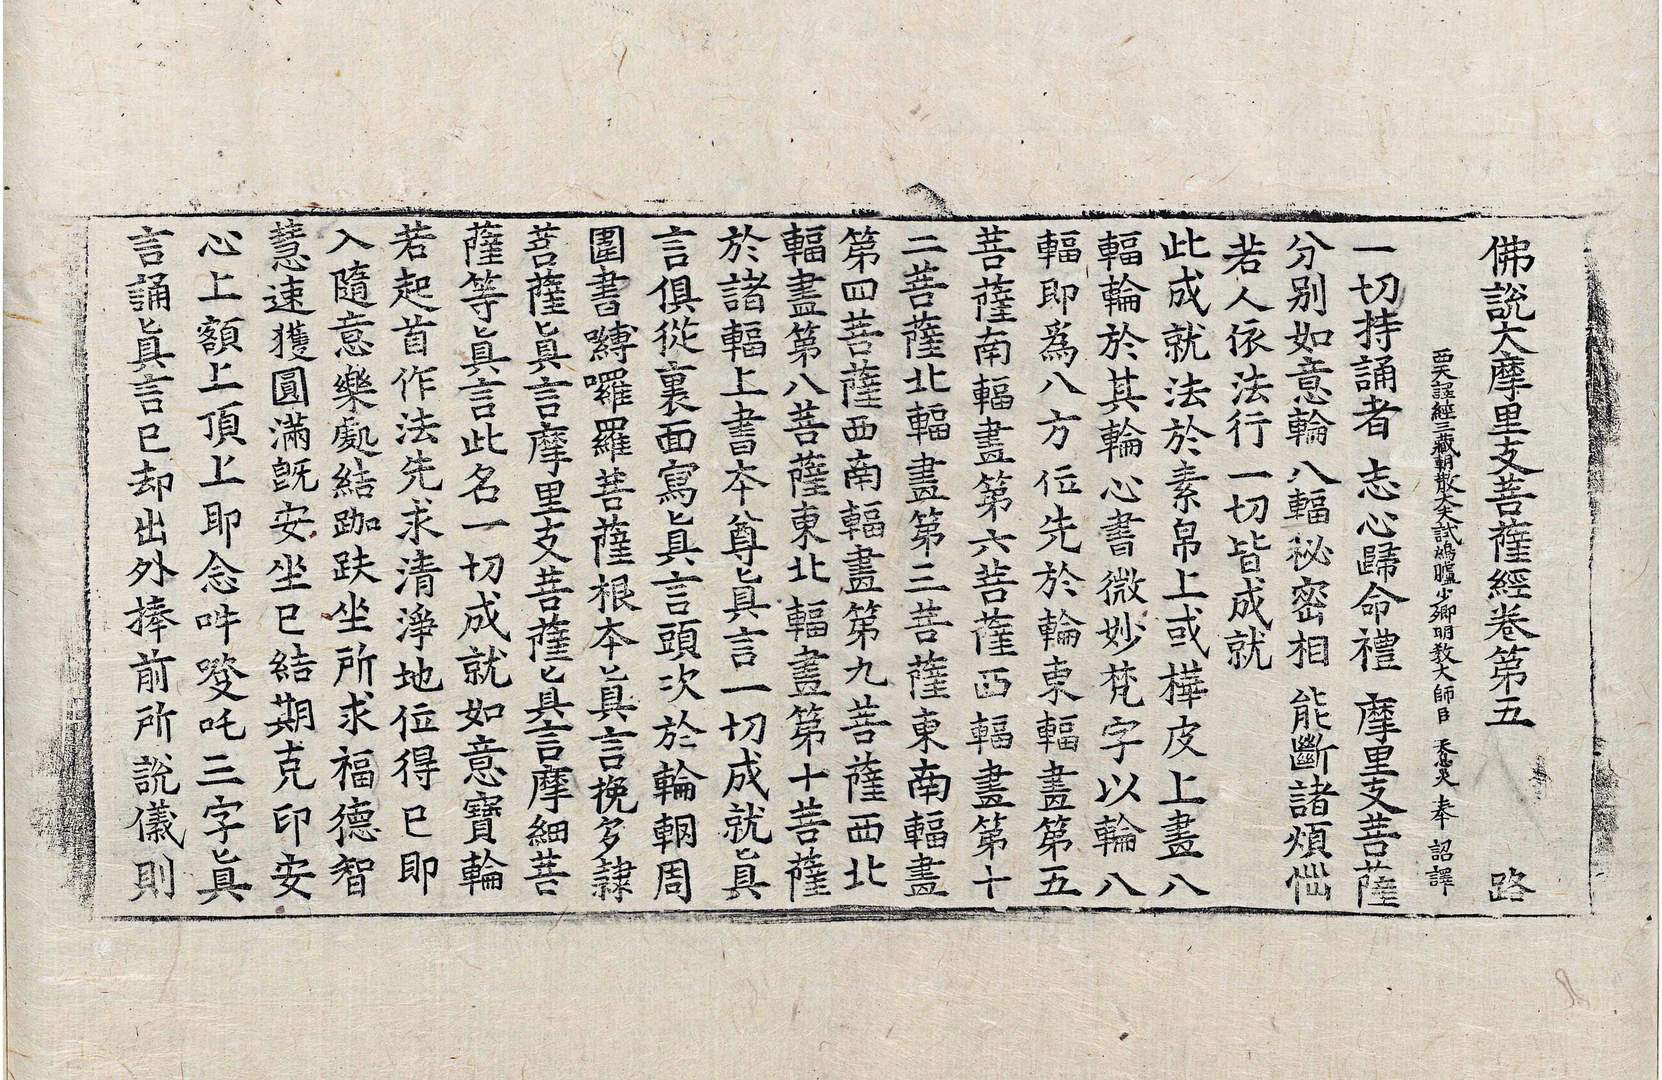 佛說大摩里支菩薩經卷第五　路
西天譯經三藏朝散大夫試鴻臚少卿明教大師臣　天息災　奉　詔譯
一切持誦者　志心歸命禮　摩里支菩薩
分别如意輪　八輻秘密相　能斷諸煩惱
若人依法行　一切皆成就
此成就法於素帛上或樺皮上畫八
輻輪於其輪心書微妙梵字以輪八
輻即爲八方位先於輪東輻畫第五
菩薩南輻畫第六菩薩西輻畫第十
二菩薩北輻畫第三菩薩東南輻畫
第四菩薩西南輻畫第九菩薩西北
輻畫第八菩薩東北輻畫第十菩薩
於諸輻上書本尊眞言一切成就眞
言俱從裏面寫眞言頭次於輪輞周
圍書嚩囉羅菩薩根本眞言挽多隷
菩薩眞言摩里支菩薩眞言摩細菩
薩等眞言此名一切成就如意寶輪
若起首作法先求清淨地位得已即
入隨意樂處結跏趺坐所求福德智
慧速獲圓滿旣安坐已結期克印安
心上額上頂上即念吽噯吒三字眞
言誦眞言已却出外捧前所說儀則